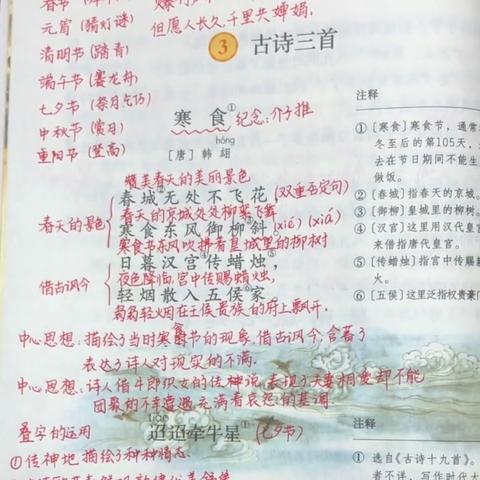 春节
元宵（猜灯谜）
但愿人长久,千里共婵娟.
清明节（踏青）
3 古诗三首
端午节（赛龙舟）
七夕节（祭月乞巧）
中秋节（赏月）
重阳节（登高）
寒食① 纪念：介子推
hóng
［唐］韩翃
赞美春天的美丽景色
春城②无处不飞花，(双重否定句)
春天的京城处处柳絮飞舞
春天的景色
寒食东风御柳③斜 (xié) (xiá)
寒食节东风吹拂着皇城里的柳树
日暮汉宫④传蜡烛⑤，
借古讽今
夜色降临,宫中传赐蜡烛,
轻烟散入五侯⑥家
袅袅轻烟在王侯贵族的府上飘开.
中心思想：描绘了当时寒食节的现象,借古讽今,含蓄
表达了诗人对现实的不满.
中心思想：诗人借牛郎织女的传说,表现了夫妻相爱却不能
团聚的不幸遭遇,充满着哀怨的基调.
叠字的运用
tiáo
迢迢牵牛星① (七夕节)
①传神地描绘了种种情态.
注释
①〔寒食〕寒食节，通常
冬至后的第105天，
去在节日期间不能生
做饭。
②〔春城〕指春天的京城。
③〔御柳〕皇城里的柳树。
④〔汉宫〕这里用汉代皇
来借指唐代皇宫。
⑤〔传蜡烛〕指宫中传赐
火。
⑥〔五侯〕这里泛指权贵豪门
注释
① 选自《古诗十九首》。
者不详，写作时代大